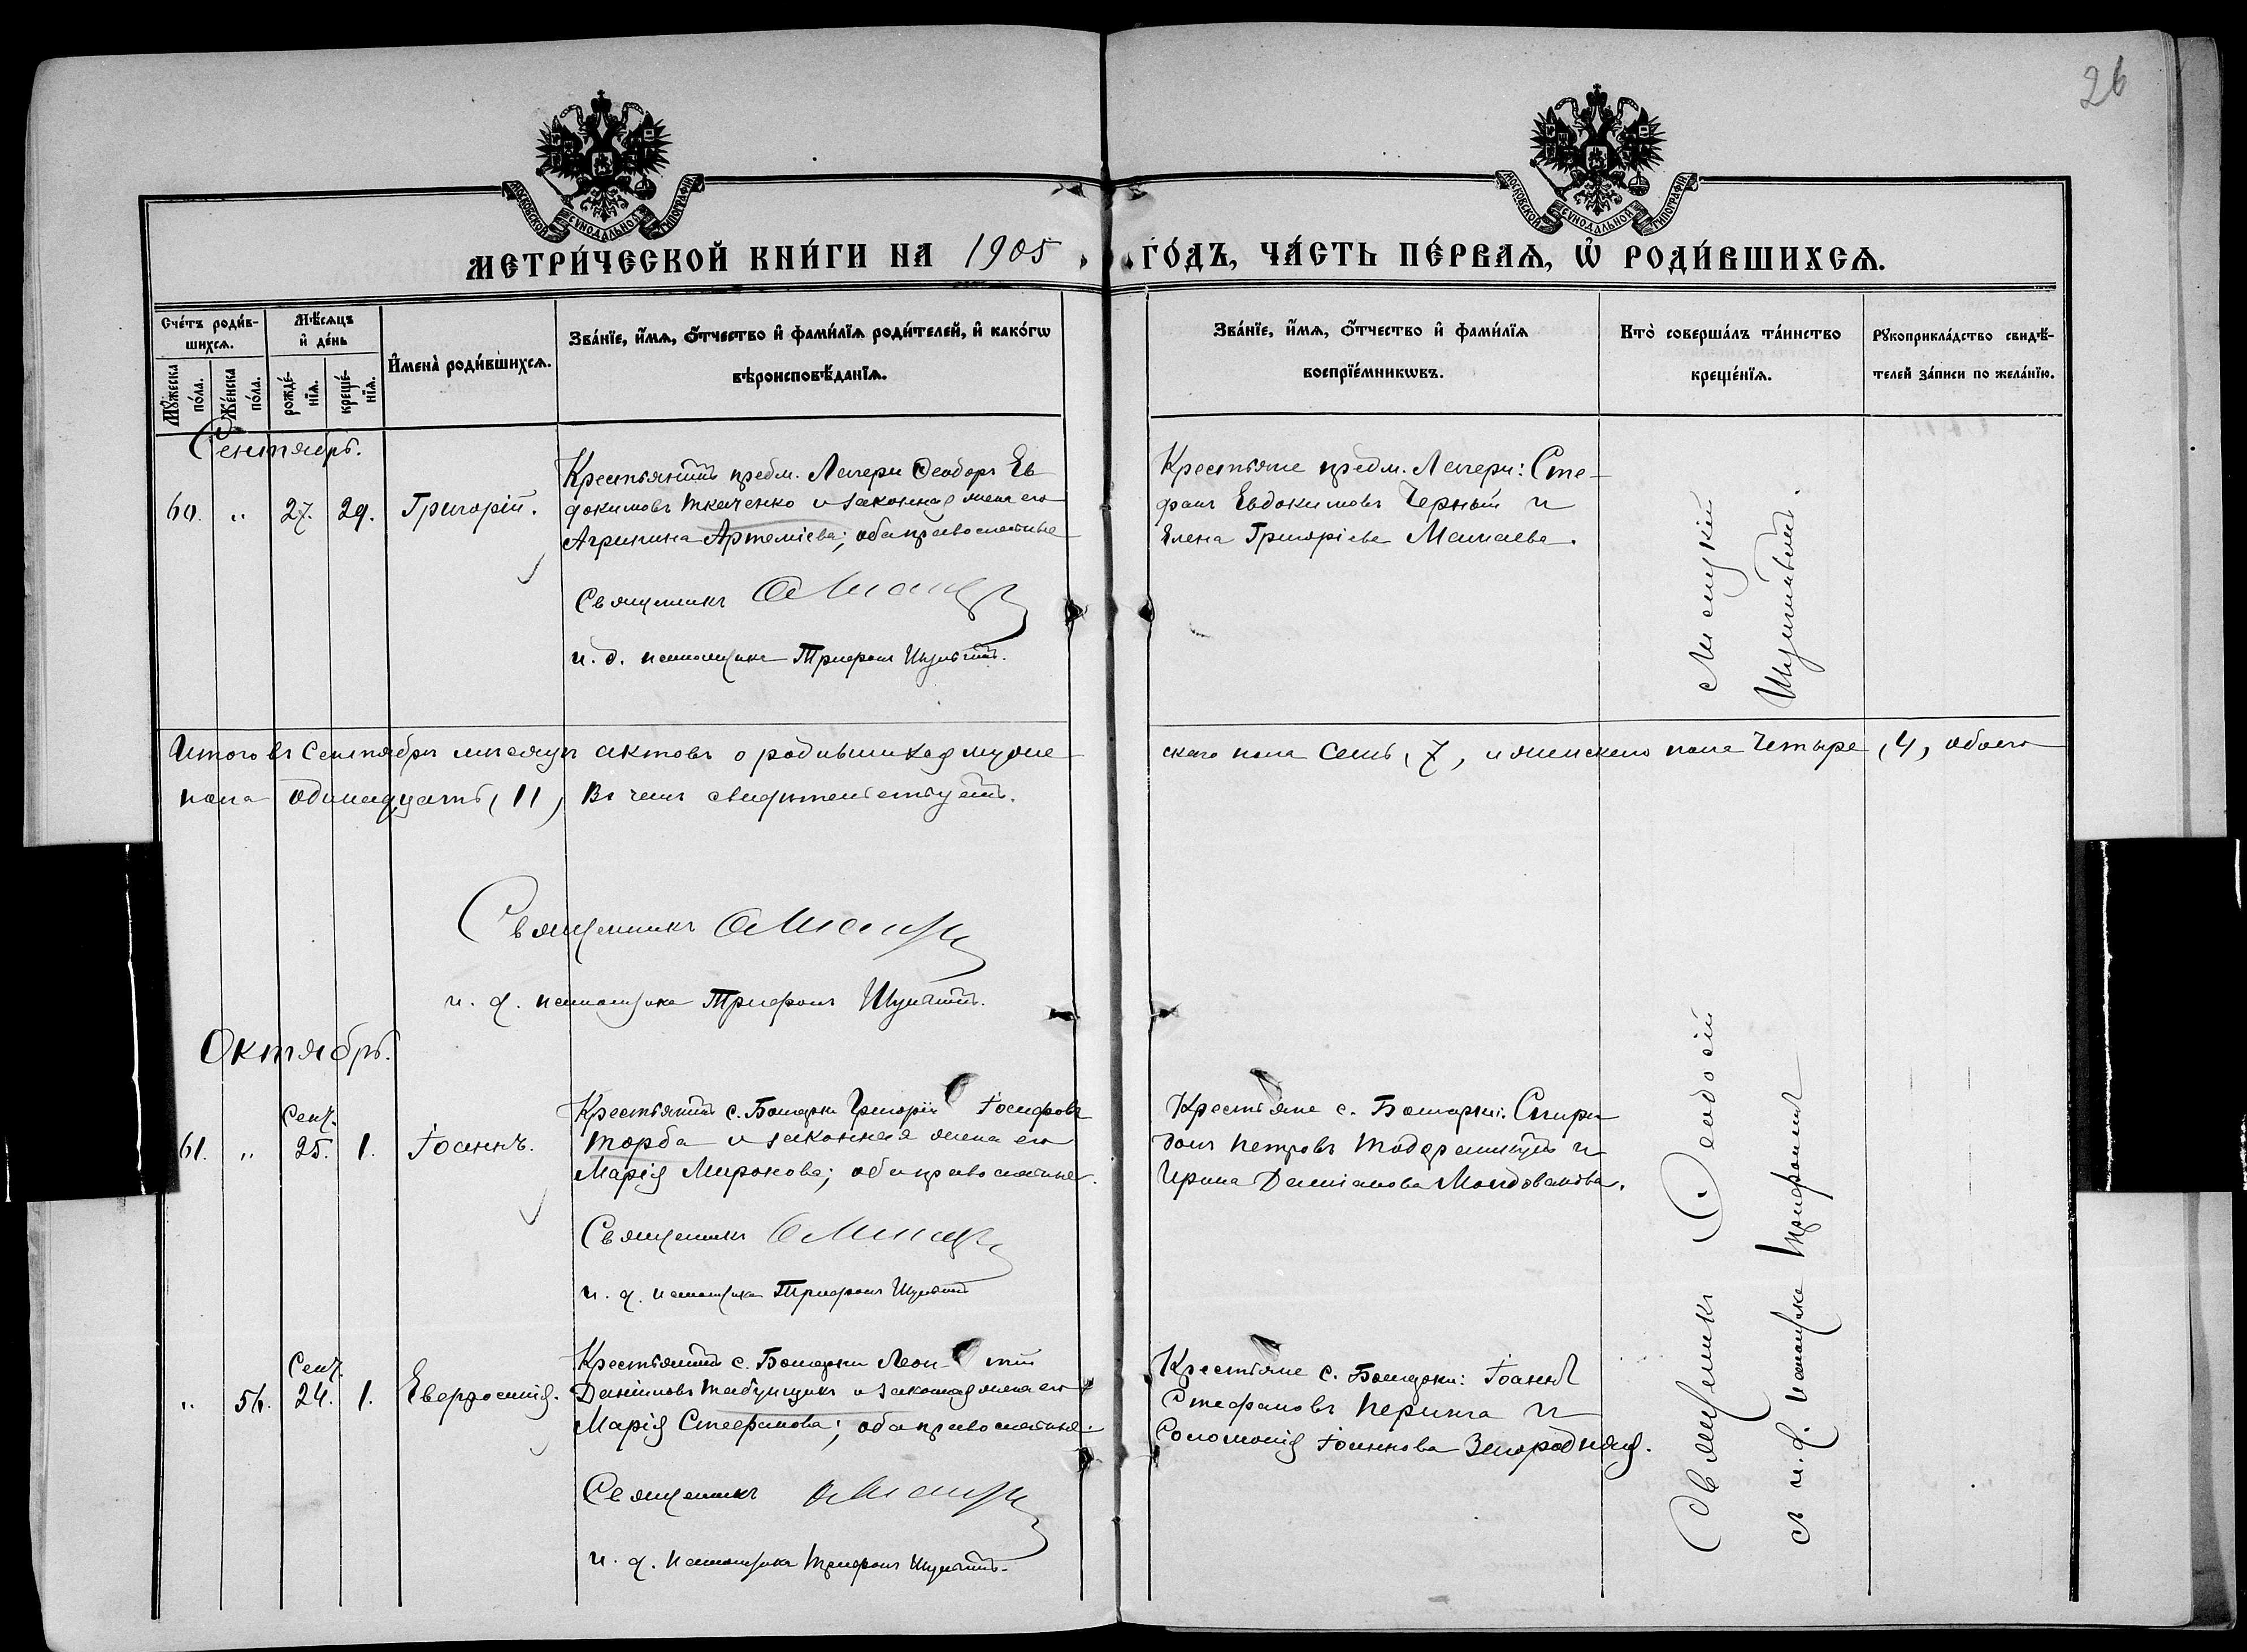 26
МОСКОВСКОЙ СѴНОДАЛЬНОЙ ТИПОГРАФІИ
МОСКОВСКОЙ СѴНОДАЛЬНОЙ ТИПОГРАФІИ
МЕТРИ́ЧЕСКОЙ КНИ́ГИ НА 1905 ГО́ДЪ, ЧА́СТЬ ПЕ́РВАѦ, Ѡ҆ РОДИ́ВШИХСѦ.
Сче́тъ роди́вшихсѧ.
Мꙋ́жеска по́ла.
Же́нска по́ла.
Мѣ́сѧцъ и҆ де́нь
рожде́нїѧ.
креще́нїѧ.
И҆мена̀ роди́вшихсѧ.
Зва́нїе, и҆́мѧ, ѻ҆́тчество и҆ фами́лїѧ роди́телей, и҆ како́гѡ
вѣроисповѣ́данїѧ.
Зва́нїе, и҆́мѧ, ѻ҆́тчество и҆ фами́лїѧ
воспрїе́мникѡвъ.
Кто̀ соверша́лъ та́инство
креще́нїѧ.
Рꙋкоприкла́дство свидѣ́телей за́писи по жела́нїю.
Сентябрь.
60. „ 27. 29. Григорій.
Крестьянинъ предм. Лагери Ѳеодоръ Ев
докимовъ Ткаченко и законная жена его
Агрипина Артеміева; оба православные
Священникъ
и. д. псаломщика Трифонъ
Крестьяне предм. Лагери: Сте-
фанъ Евдокимовъ Черный и
Елена Григоріева Мамаева.
Итого въ Сентябрѣ мѣсяцѣ актовъ о родившихся муже
скаго пола семь, 7, и женскаго пола четыре, 4, обоего
пола одинадцать, 11, въ чемъ свидѣтельствуемъ.
Священникъ
и. д. псаломщика Трифонъ
Октябрь.
61. „ Сент. 25. 1. Іоаннъ.
Крестьянинъ с. Бошерки Григорій Іосифовъ
Торба и законная жена его
Марія Миронова; оба православные.
Священникъ
и. д. псаломщика Трифонъ
Крестьяне с. Бошерки: Спири
донъ Петровъ и
Ирина Даміанова Молдованова.
„ 56. Сент. 24. 1. Евфросинія.
Крестьянинъ с. Бошерки Леонтій
Даніиловъ Табунщикъ и законная жена его
Марія Стефанова; оба православные.
Священникъ
и. д. псаломщика Трифонъ
Крестьяне с. Бошерки: Іоаннъ
Стефановъ и
Соломонія Іоаннова Загородняя.
Священникъ Ѳеодосій
съ и. д. псаломщика Трифономъ